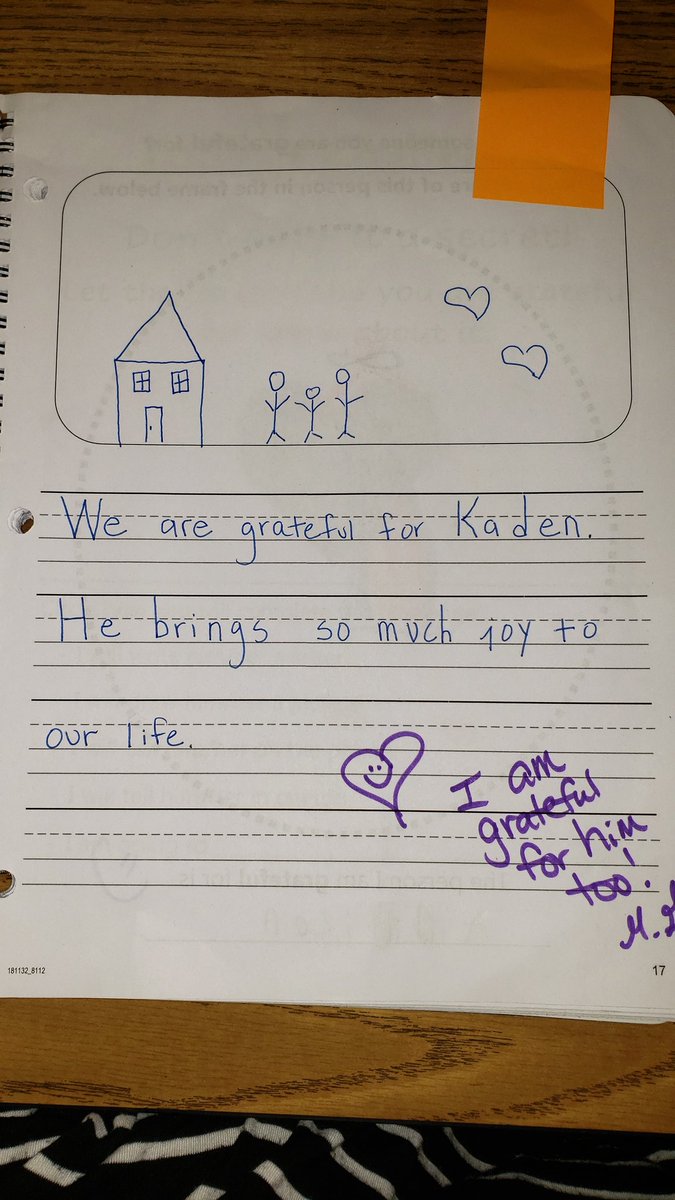 We are grateful for Kaden.
He brings so much joy to
our life.
I am
grateful
for him
too!
181132_8112
17